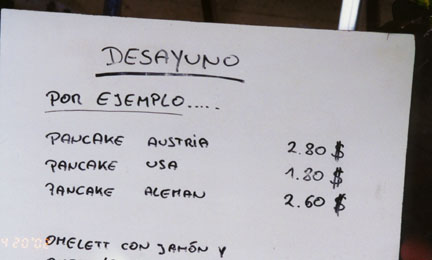 DESAYUNO
POR EJEMPLO.....
PANCAKE AUSTRIA 2.80 $
PANCAKE USA 1.80 $
PANCAKE ALEMAN 2.60 $
OMELETT CON JAMÓN Y